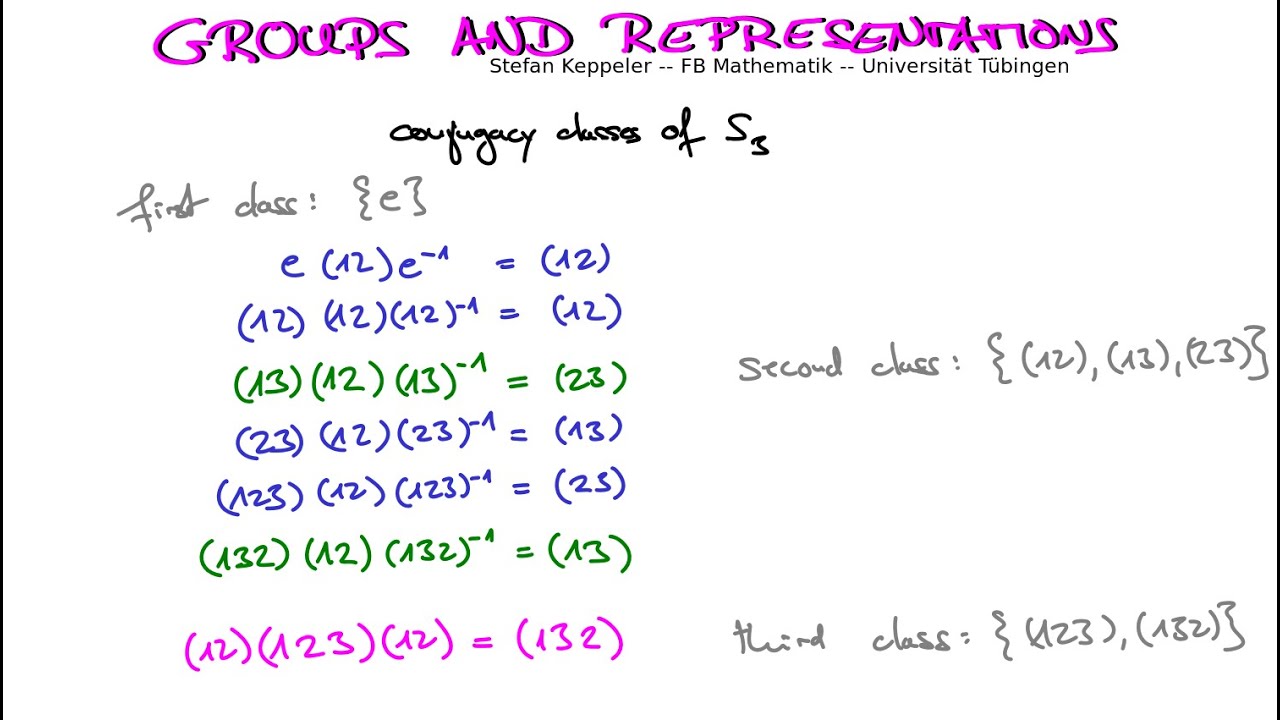 GROUPS AND REPRESENTATIONS
Stefan Keppeler -- FB Mathematik -- Universität Tübingen
conjugacy classes of S₃
first class: {e}
e (12) e⁻¹ = (12)
(12) (12) (12)⁻¹ = (12)
(13) (12) (13)⁻¹ = (23)
second class: {(12), (13), (23)}
(23) (12) (23)⁻¹ = (13)
(123) (12) (123)⁻¹ = (23)
(132) (12) (132)⁻¹ = (13)
(12) (123) (12) = (132)
third class: {(123), (132)}